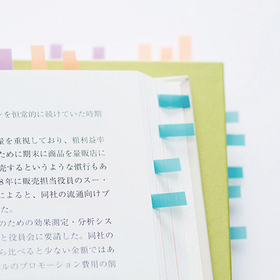 ンを恒常的に続けていた時期
量を重視しており、粗利益率
ために期末に商品を量販店に
売するというような慣行もあ
8年に販売担当役員のスー・
によると、同社の流通向けプ
た。
のための効果測定・分析シス
と役員会に要請した。同社の
ら比べると少ない金額ではあ
ールのプロモーション費用の削